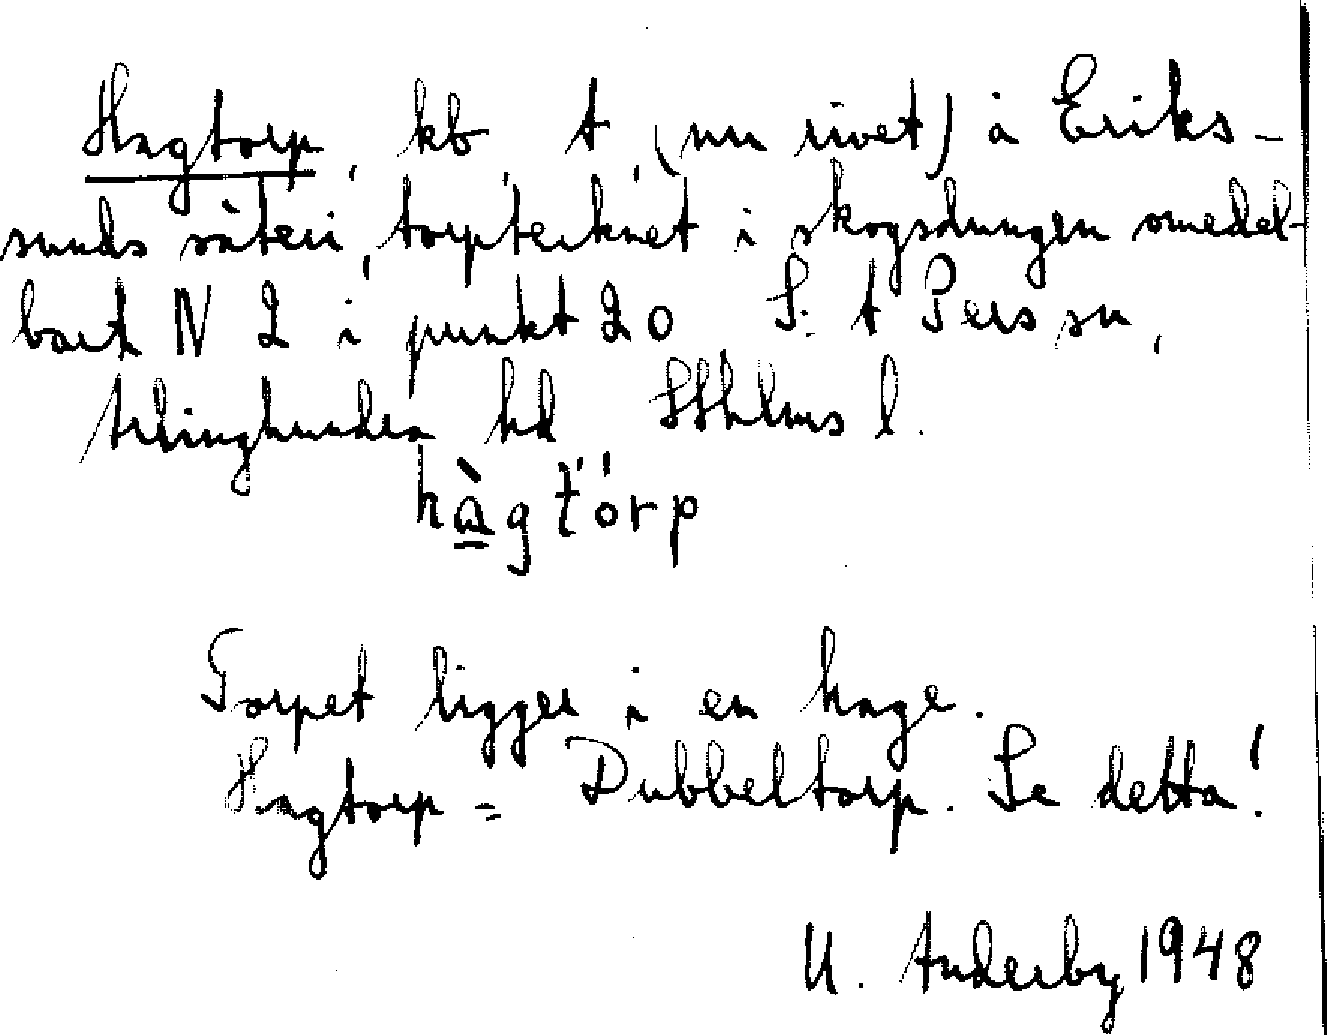 Hagtorp, kb t, (nu rivet) å Eriks-
sunds säteri, torptecknet i skogsdungen omedel-
bart N 2 i punkt 20 S:t Pers sn,
Ärlinghundra hd Sthlms l.
hàgtórp
Torpet ligger i en hage.
Hagtorp = Dubbeltorp. Se detta!
U. Anderby 1948